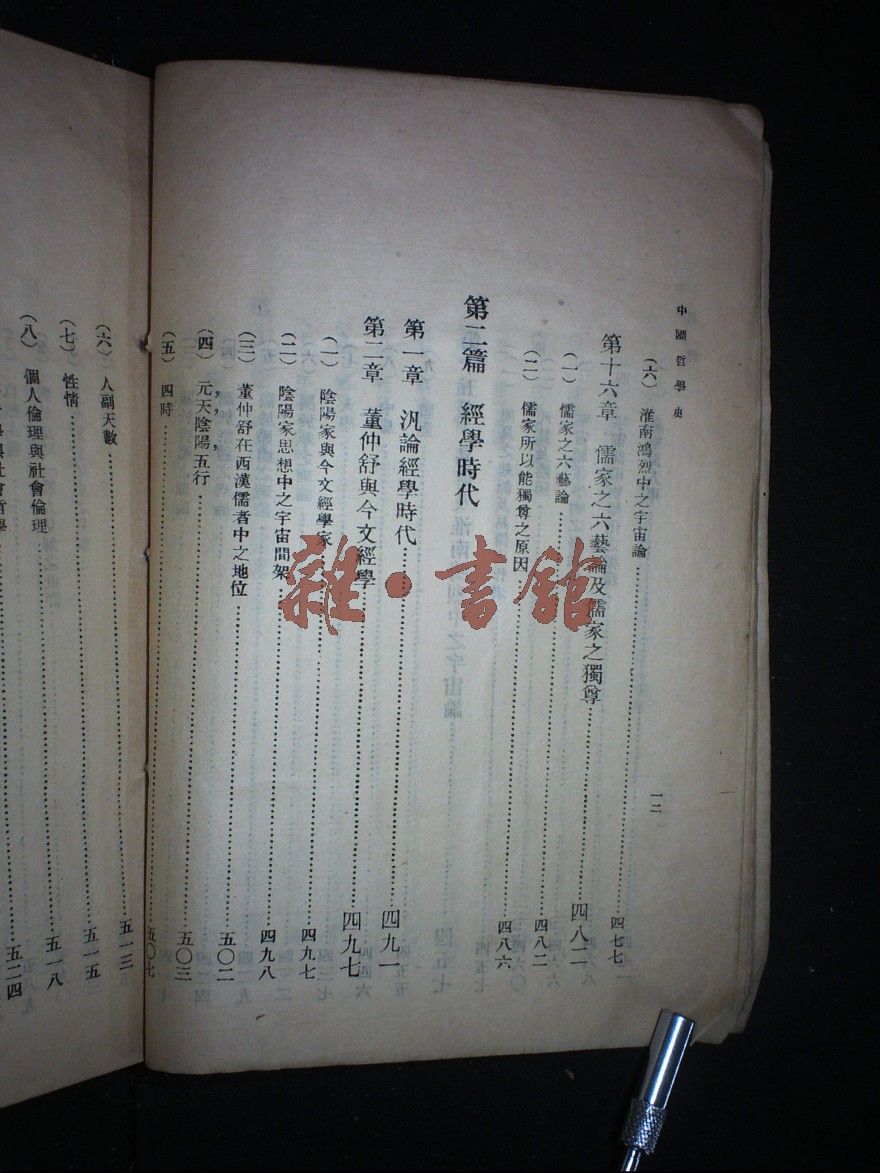 中國哲學史
一二
（六） 淮南鴻烈中之宇宙論……四七七
第十六章 儒家之六藝論及儒家之獨尊……四八二
（一） 儒家之六藝論……四八二
（二） 儒家所以能獨尊之原因……四八六
第二篇 經學時代
第一章 汎論經學時代……四九一
第二章 董仲舒與今文經學……四九七
（一） 陰陽家與今文經學家……四九七
（二） 陰陽家思想中之宇宙間架……四九八
（三） 董仲舒在西漢儒者中之地位……五〇二
（四） 元，天，陰陽，五行……五〇三
（五） 四時……五〇七
（六） 人副天數……五一三
（七） 性情……五一五
（八） 個人倫理與社會倫理……五一八
五二四
雜·書館